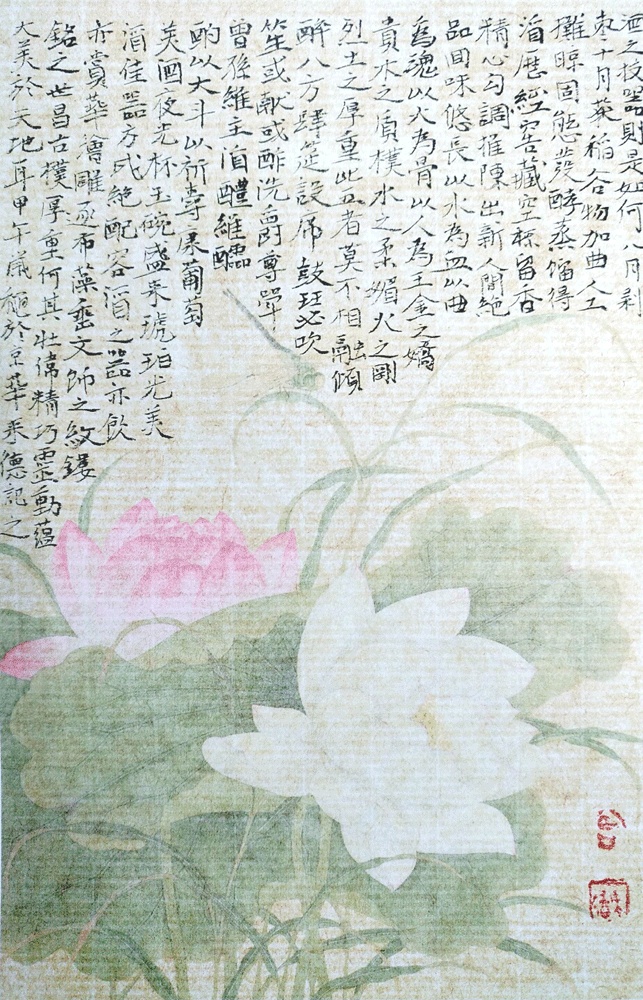 酒之技器則是如何八月剥
枣十月菜稻谷物加曲人工
攤晾固態發酵蒸馏得
酒歷經窖藏空杯留香
精心勾調推陳出新人間絶
品回味悠長以水為血以曲
為魂以火為骨以人為王金之嬌
貴木之质樸水之柔媚火之剛
烈土之厚重此五者莫不相融傾
醉八方肆筵設席鼓瑟吹
笙或献或酢洗爵尊斝
曾孫維主酒醴維醹
酌以大斗以祈壽康葡萄
美酒夜光杯玉碗盛来琥珀光美
酒佳器方成絶配容酒之器亦飲
亦賞華繪雕琢布藻壘文飾之紋鏤
銘之世昌古樸厚重何其壯偉精巧靈動蕴
大美於天地耳甲午歲 於京華秉德記之